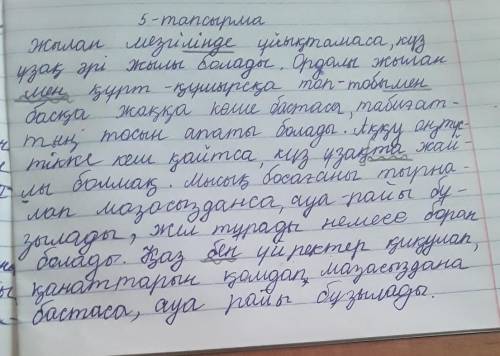 5-тапсырма
Жылан мезгілінде ұйықтамаса, күз
ұзақ әрі жылы болады. Ордалы жылан
мен құрт-құмырсқа топ-тобымен
басқа жаққа көше бастаса, табиғат-
тың тосын апаты болады. Аққу оңтүс-
тікке кеш қайтса, күз ұзақта жай-
лы болмақ. Мысық босағаны тырна-
лап мазасызданса, ауа-райы бұ-
зылады, жел тұрады немесе боран
болады. Қаз бен үйректер қиқулап,
қанаттарын қомдап, мазасыздана
бастаса, ауа райы бұзылады.